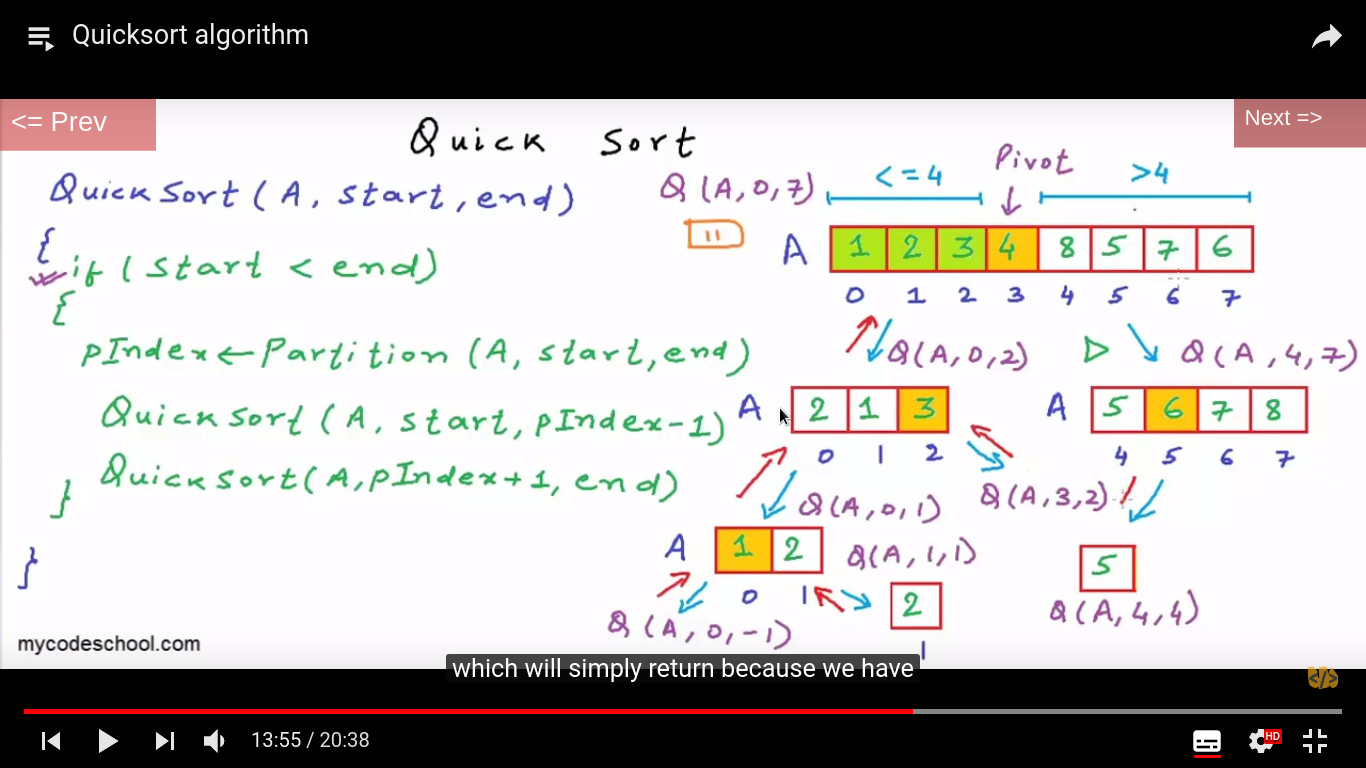 Quicksort algorithm
<= Prev
Next =>
Quick Sort
QuickSort(A, start, end)
{
if (start < end)
{
pIndex←Partition(A, start, end)
QuickSort(A, start, pIndex-1)
QuickSort(A, pIndex+1, end)
}
}
Q(A,0,7)
<=4
Pivot
>4
A 1 2 3 4 8 5 7 6
0 1 2 3 4 5 6 7
Q(A,0,2)
Q(A,4,7)
A 2 1 3
0 1 2
A 5 6 7 8
4 5 6 7
Q(A,0,1)
Q(A,3,2)
A 1 2
0 1
Q(A,1,1)
5
Q(A,4,4)
Q(A,0,-1)
2
1
mycodeschool.com
which will simply return because we have
</>
13:55 / 20:38
HD